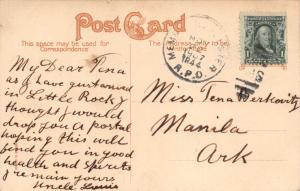 Post Card
This space may be used for
Correspondence
The Address only to be
My Dear Tina
as I have just arrived
in Little Rock, I
thought I would
drop you a postal
hoping this will
find you in good
health and spirits
I remain yours
Uncle Louis
R.P.O.
1
Miss Tena Berkovitz
Manila
Ark